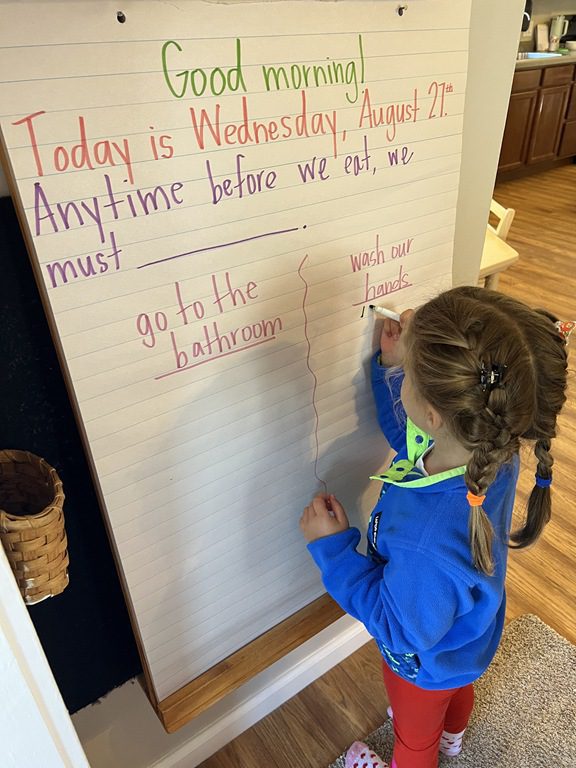 Good morning!
Today is Wednesday, August 27th.
Anytime before we eat, we
must ________.
go to the
bathroom
wash our
hands